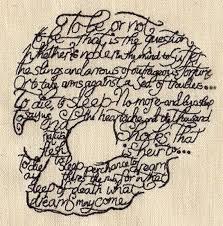 To be or not
to be that is the Question
Whether tis nobler in my mind to suffer
the slings and arrows of outrageous fortune
or to take arms against a sea of troubles...
to die, to sleep No more and by a sleep
to say we the heartache and the thousand
natural shocks that
flesh is heir to...
to die to sleep perchance to dream
ay there's the rub for in that
sleep of death what
dreams may come